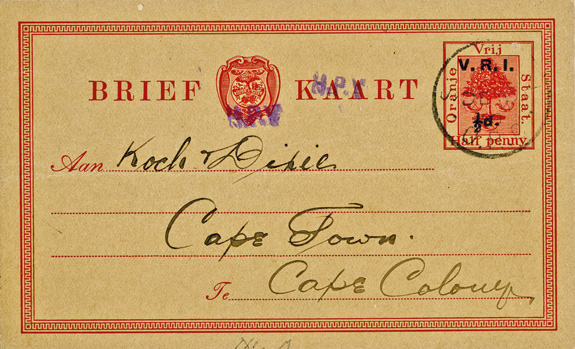 Vrij
Oranje
Staat.
V. R. I.
½d.
Half penny
BRIEF KAART
H.P.N
Aan Koch & Dixie
Cape Town.
Te Cape Colony